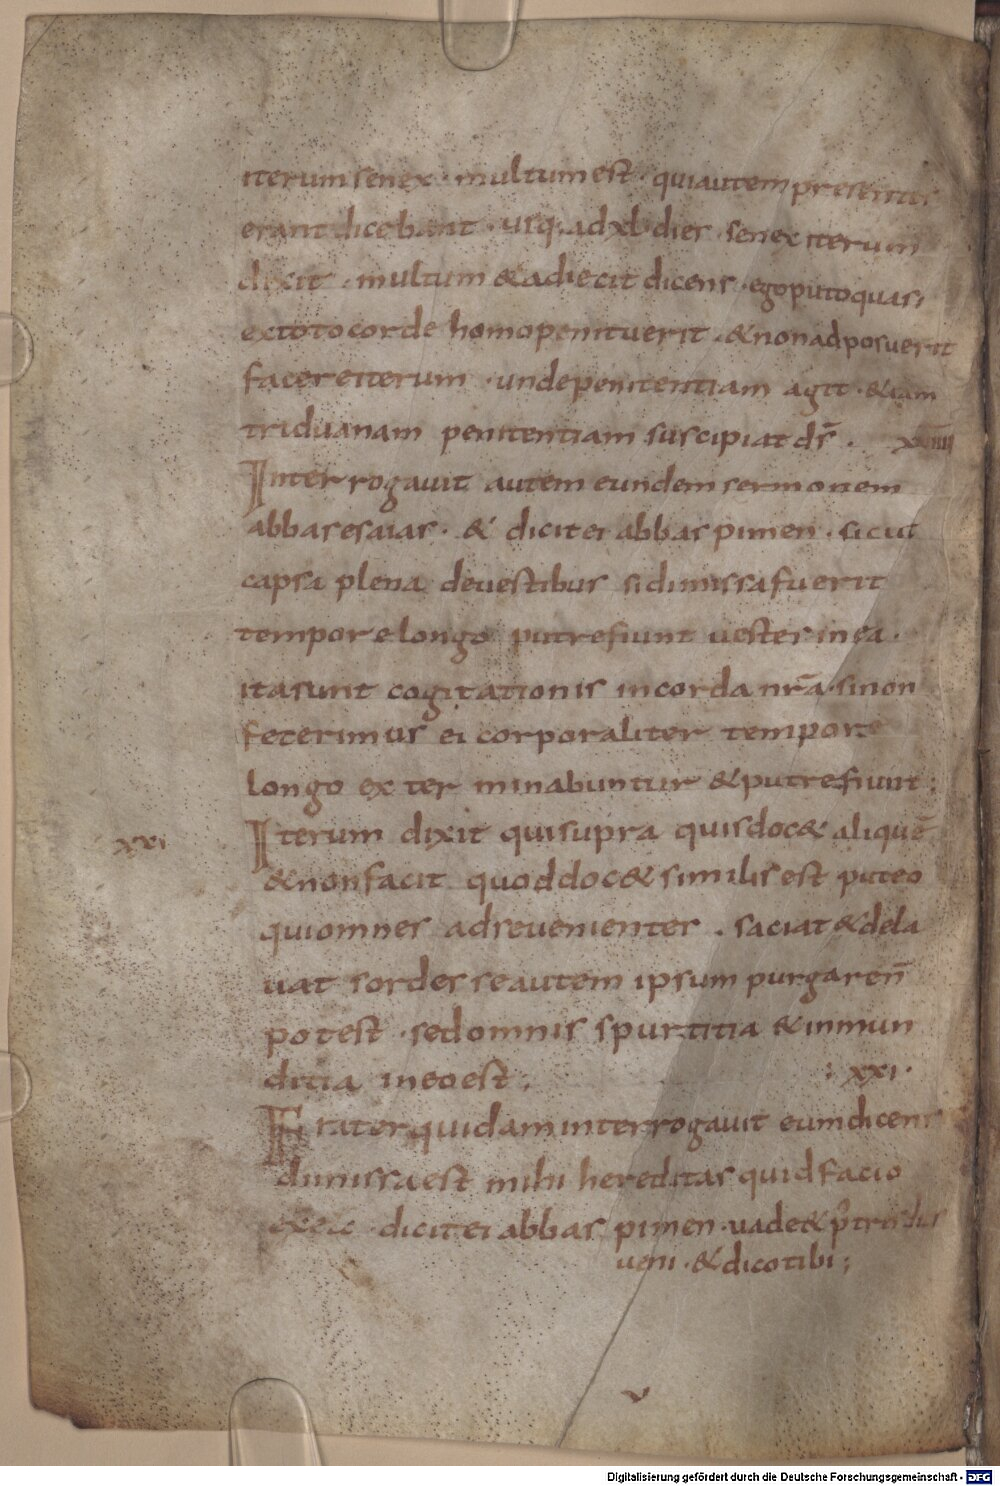 iterum senex · multum est · qui autem presentes
erant dicebant · usq; ad xl dies · senex iterum
dixit · multum & adiecit dicens · ego puto quasi
ex toto corde homo penituerit · & non adposuerit
facere iterum · unde penitentiam agit · & iam
triduanam penitentiam suscipiat d̄s · xxiiii
Interrogauit autem eundem sermonem
abbas esaias · & dicit ei abbas pimen · sicut
capsa plena de uestibus si dimissa fuerit
tempore longo putrefiunt uestes in ea ·
ita sunt cogitationis in corda nr̄a · si non
feterimus ei corporaliter tempore
longo exterminabuntur & putrefiunt ;
xxi Iterum dixit qui supra quis doc& aliquē
& non facit quod doc& similis est puteo
qui omnes ad se uenientes · saciat & dela
uat sordes se autem ipsum purgare n̄
potest · sed omnis spurtitia & inmun
ditia in eo est ; : xxi ·
Frater quidam interrogauit eum dicens
dimissa est mihi hereditas quid facio
dicit ei abbas pimen · uade & p̄ tres dies
ueni · & dico tibi ;
v
Digitalisierung gefördert durch die Deutsche Forschungsgemeinschaft - DFG